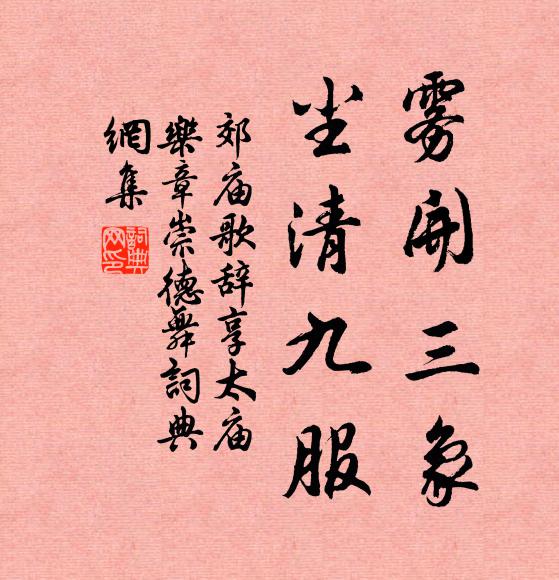 雾开三象
尘清九服
郊庙歌辞享太庙
樂章崇德舞詞典
網集
詞典
网印